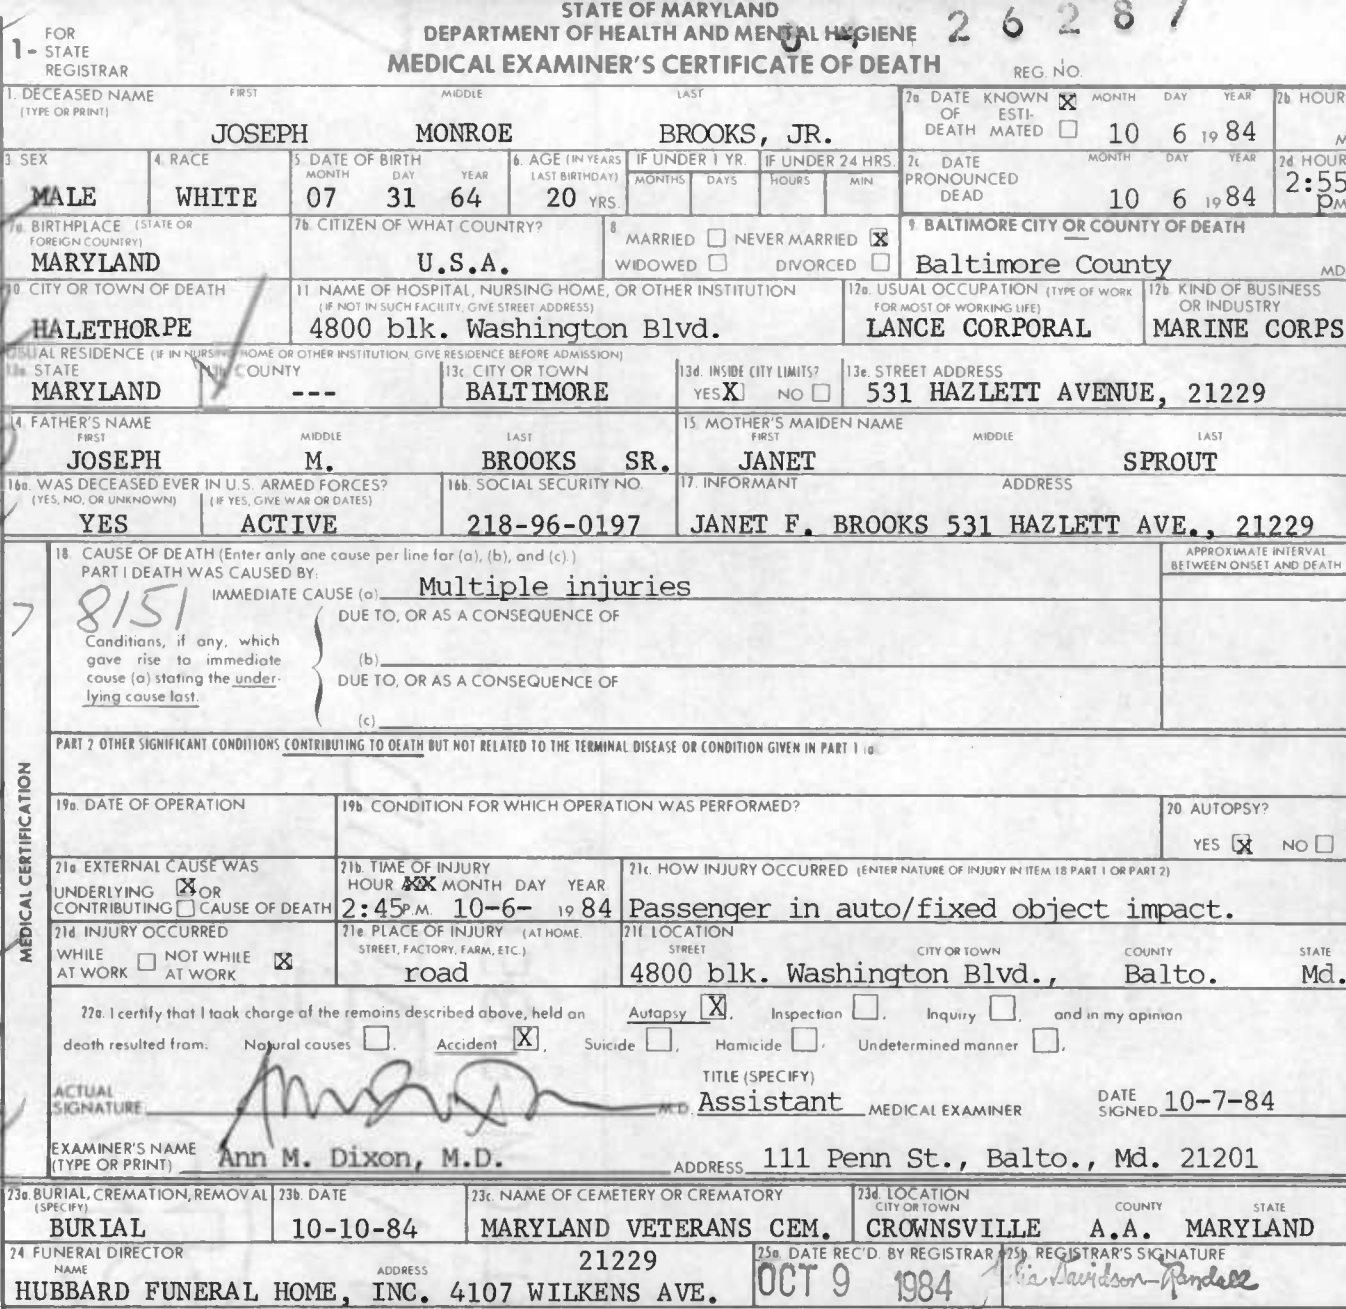 STATE OF MARYLAND
DEPARTMENT OF HEALTH AND MENTAL HYGIENE
26287
MEDICAL EXAMINER'S CERTIFICATE OF DEATH
REG. NO.
FOR
1- STATE
REGISTRAR
1. DECEASED NAME FIRST MIDDLE LAST
(TYPE OR PRINT)
JOSEPH MONROE BROOKS, JR.
2a DATE KNOWN X MONTH DAY YEAR
OF ESTI-
DEATH MATED 10 6 1984
2b. HOUR
M
3. SEX
MALE
4. RACE
WHITE
5. DATE OF BIRTH
MONTH DAY YEAR
07 31 64
6. AGE (IN YEARS
LAST BIRTHDAY)
20 YRS.
IF UNDER 1 YR.
MONTHS DAYS
IF UNDER 24 HRS.
HOURS MIN
2c DATE MONTH DAY YEAR
PRONOUNCED
DEAD 10 6 1984
2d HOUR
2:55
PM
7a. BIRTHPLACE (STATE OR
FOREIGN COUNTRY)
MARYLAND
7b. CITIZEN OF WHAT COUNTRY?
U.S.A.
8
MARRIED NEVER MARRIED X
WIDOWED DIVORCED
9. BALTIMORE CITY OR COUNTY OF DEATH
Baltimore County MD
10. CITY OR TOWN OF DEATH
HALETHORPE
11. NAME OF HOSPITAL, NURSING HOME, OR OTHER INSTITUTION
(IF NOT IN SUCH FACILITY, GIVE STREET ADDRESS)
4800 blk. Washington Blvd.
12a. USUAL OCCUPATION (TYPE OF WORK
FOR MOST OF WORKING LIFE)
LANCE CORPORAL
12b. KIND OF BUSINESS
OR INDUSTRY
MARINE CORPS
USUAL RESIDENCE (IF IN NURSING HOME OR OTHER INSTITUTION, GIVE RESIDENCE BEFORE ADMISSION)
13a. STATE
MARYLAND
13b. COUNTY
---
13c CITY OR TOWN
BALTIMORE
13d. INSIDE CITY LIMITS?
YES X NO
13e. STREET ADDRESS
531 HAZLETT AVENUE, 21229
14. FATHER'S NAME
FIRST MIDDLE LAST
JOSEPH M. BROOKS SR.
15. MOTHER'S MAIDEN NAME
FIRST MIDDLE LAST
JANET SPROUT
16a. WAS DECEASED EVER IN U.S. ARMED FORCES?
(YES, NO, OR UNKNOWN) (IF YES, GIVE WAR OR DATES)
YES ACTIVE
16b. SOCIAL SECURITY NO.
218-96-0197
17. INFORMANT ADDRESS
JANET F. BROOKS 531 HAZLETT AVE., 21229
MEDICAL CERTIFICATION
18. CAUSE OF DEATH (Enter only one cause per line for (a), (b), and (c).)
PART I DEATH WAS CAUSED BY:
IMMEDIATE CAUSE (a) Multiple injuries
APPROXIMATE INTERVAL
BETWEEN ONSET AND DEATH
8151
DUE TO, OR AS A CONSEQUENCE OF
Conditions, if any, which
gave rise to immediate
cause (a) stating the under-
lying cause last.
(b)
DUE TO, OR AS A CONSEQUENCE OF
(c)
PART 2 OTHER SIGNIFICANT CONDITIONS CONTRIBUTING TO DEATH BUT NOT RELATED TO THE TERMINAL DISEASE OR CONDITION GIVEN IN PART 1 (a)
19a. DATE OF OPERATION
19b. CONDITION FOR WHICH OPERATION WAS PERFORMED?
20 AUTOPSY?
YES X NO
21a EXTERNAL CAUSE WAS
UNDERLYING X OR
CONTRIBUTING CAUSE OF DEATH
21b. TIME OF INJURY
HOUR XXX MONTH DAY YEAR
2:45 P.M. 10-6- 1984
21c. HOW INJURY OCCURRED (ENTER NATURE OF INJURY IN ITEM 18 PART I OR PART 2)
Passenger in auto/fixed object impact.
21d INJURY OCCURRED
WHILE NOT WHILE
AT WORK AT WORK X
21e PLACE OF INJURY (AT HOME.
STREET, FACTORY, FARM, ETC.)
road
21f. LOCATION
STREET CITY OR TOWN COUNTY STATE
4800 blk. Washington Blvd., Balto. Md.
22a. I certify that I took charge of the remains described above, held an Autopsy X, Inspection, Inquiry, and in my opinion
death resulted from: Natural causes, Accident X, Suicide, Homicide, Undetermined manner.
ACTUAL
SIGNATURE M.D.
TITLE (SPECIFY)
Assistant MEDICAL EXAMINER
DATE
SIGNED 10-7-84
EXAMINER'S NAME
(TYPE OR PRINT) Ann M. Dixon, M.D.
ADDRESS 111 Penn St., Balto., Md. 21201
23a. BURIAL, CREMATION, REMOVAL
(SPECIFY)
BURIAL
23b. DATE
10-10-84
23c. NAME OF CEMETERY OR CREMATORY
MARYLAND VETERANS CEM.
23d. LOCATION
CITY OR TOWN COUNTY STATE
CROWNSVILLE A.A. MARYLAND
24 FUNERAL DIRECTOR
NAME ADDRESS 21229
HUBBARD FUNERAL HOME, INC. 4107 WILKENS AVE.
25a. DATE REC'D. BY REGISTRAR
OCT 9 1984
25b. REGISTRAR'S SIGNATURE
Davidson-Randall